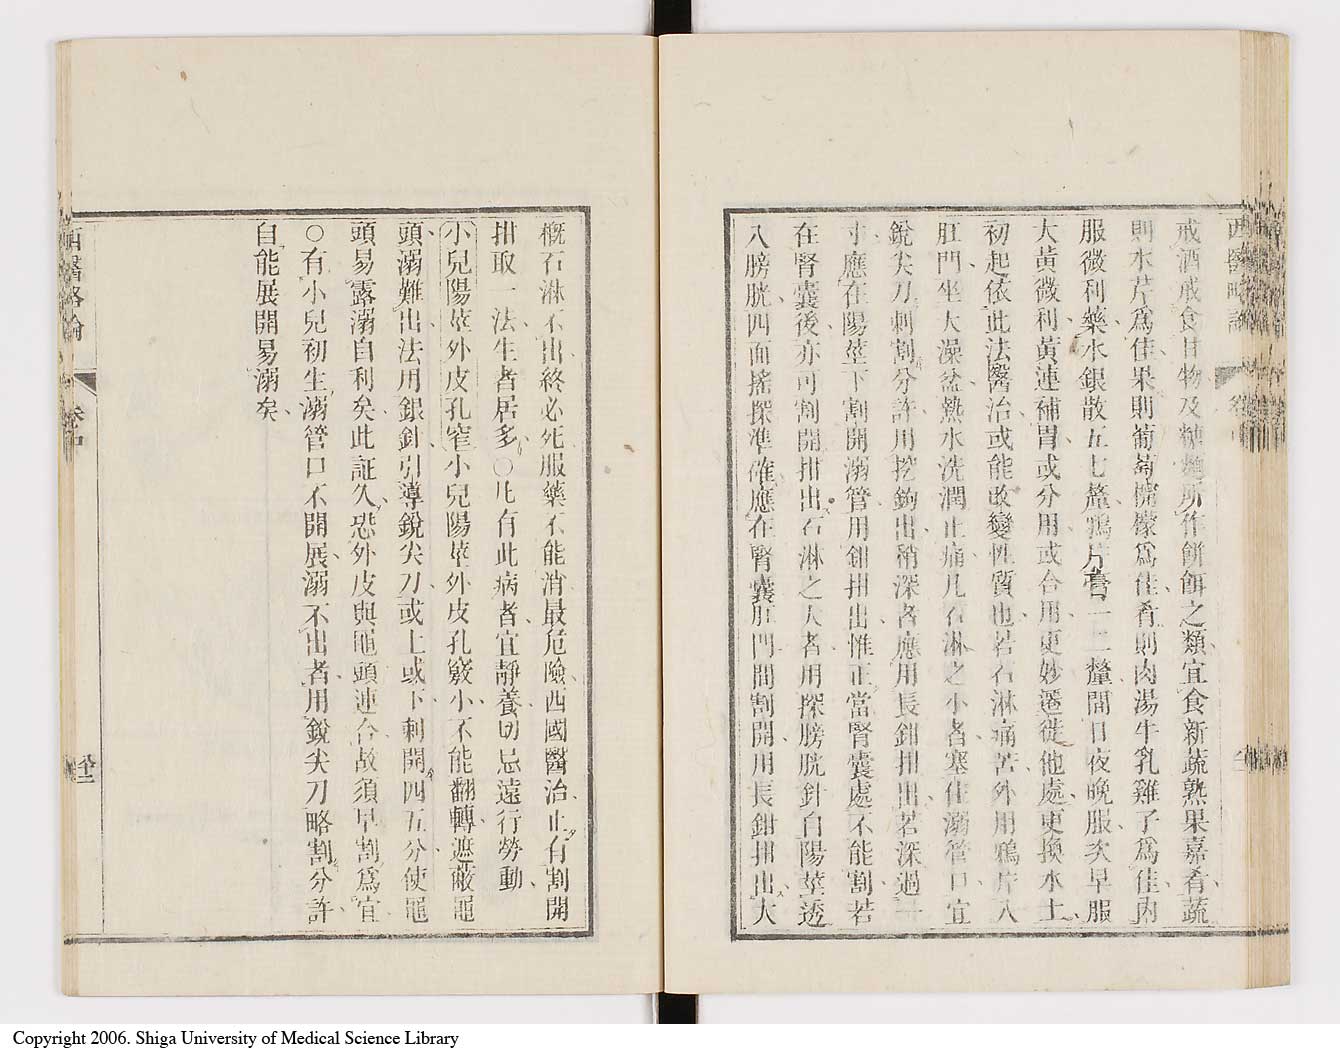 戒酒戒食甘物及糖麵所作餅餌之類宜食新蔬熟果嘉肴蔬
則水芹爲佳果則葡萄檸檬爲佳肴則肉湯牛乳雞子爲佳內
服微利藥水銀散五七釐鴉片膏一二釐間日夜晚服次早服
大黃微利黃連補胃或分用或合用更妙遷徙他處更換水土
初起依此法醫治或能改變性質也若石淋痛苦外用鴉片八
肛門坐大澡盆熱水洗潤止痛凡石淋之小者塞住溺管口宜
銳尖刀刺割分許用挖鉤出稍深者應用長鉗拑出若深過一
寸應在陽莖下割開溺管用鉗拑出惟正當腎囊處不能割若
在腎囊後亦可割開拑出石淋之大者用探膀胱針自陽莖透
入膀胱四面搖探準確應在腎囊肛門間割開用長鉗拑出大
概石淋不出終必死服藥不能消最危險西國醫治止有割開
拑取一法生者居多〇凡有此病者宜靜養切忌遠行勞動
小兒陽莖外皮孔窄小兒陽莖外皮孔竅小不能翻轉遮蔽龜
頭溺難出法用銀針引導銳尖刀或上或下刺開四五分使龜
頭易露溺自利矣此証久恐外皮與龜頭連合故須早割爲宜
〇有小兒初生溺管口不開展溺不出者用銳尖刀略割分許
自能展開易溺矣
西醫略論
卷中
Copyright 2006. Shiga University of Medical Science Library